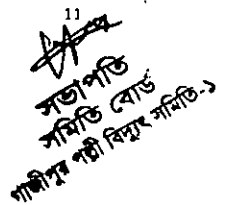 11
সভাপতি
সমিতি বোর্ড
গাজীপুর পল্লী বিদ্যুৎ সমিতি-১